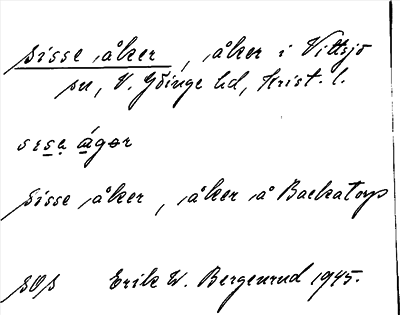 sisse åker, åker i Vittsjö
sn, V. Göinge hd, Krist. l.
sisse åker, åker å Backatorp
Erik W. Bergenrud 1945.